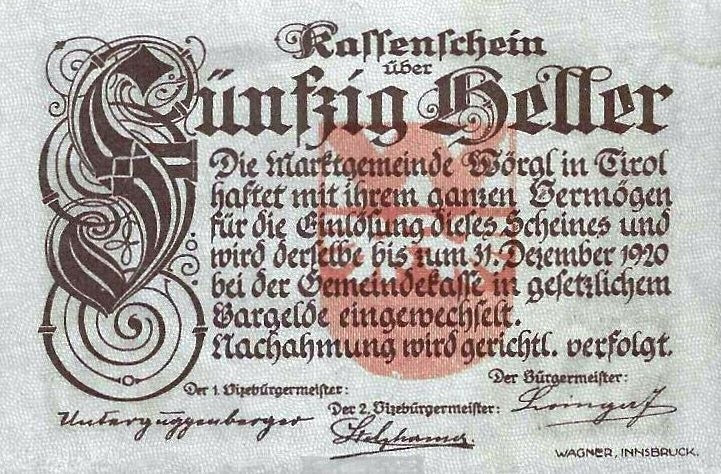 Kassenschein
über
Fünfzig Heller
Die Marktgemeinde Wörgl in Tirol
haftet mit ihrem ganzen Vermögen
für die Einlösung dieses Scheines und
wird derselbe bis zum 31. Dezember 1920
bei der Gemeindekasse in gesetzlichem
Bargelde eingewechselt.
Nachahmung wird gerichtl. verfolgt.
Der 1. Vizebürgermeister:
Unterguggenberger
Der 2. Vizebürgermeister:
Stelzhamer
Der Bürgermeister:
WAGNER, INNSBRUCK.